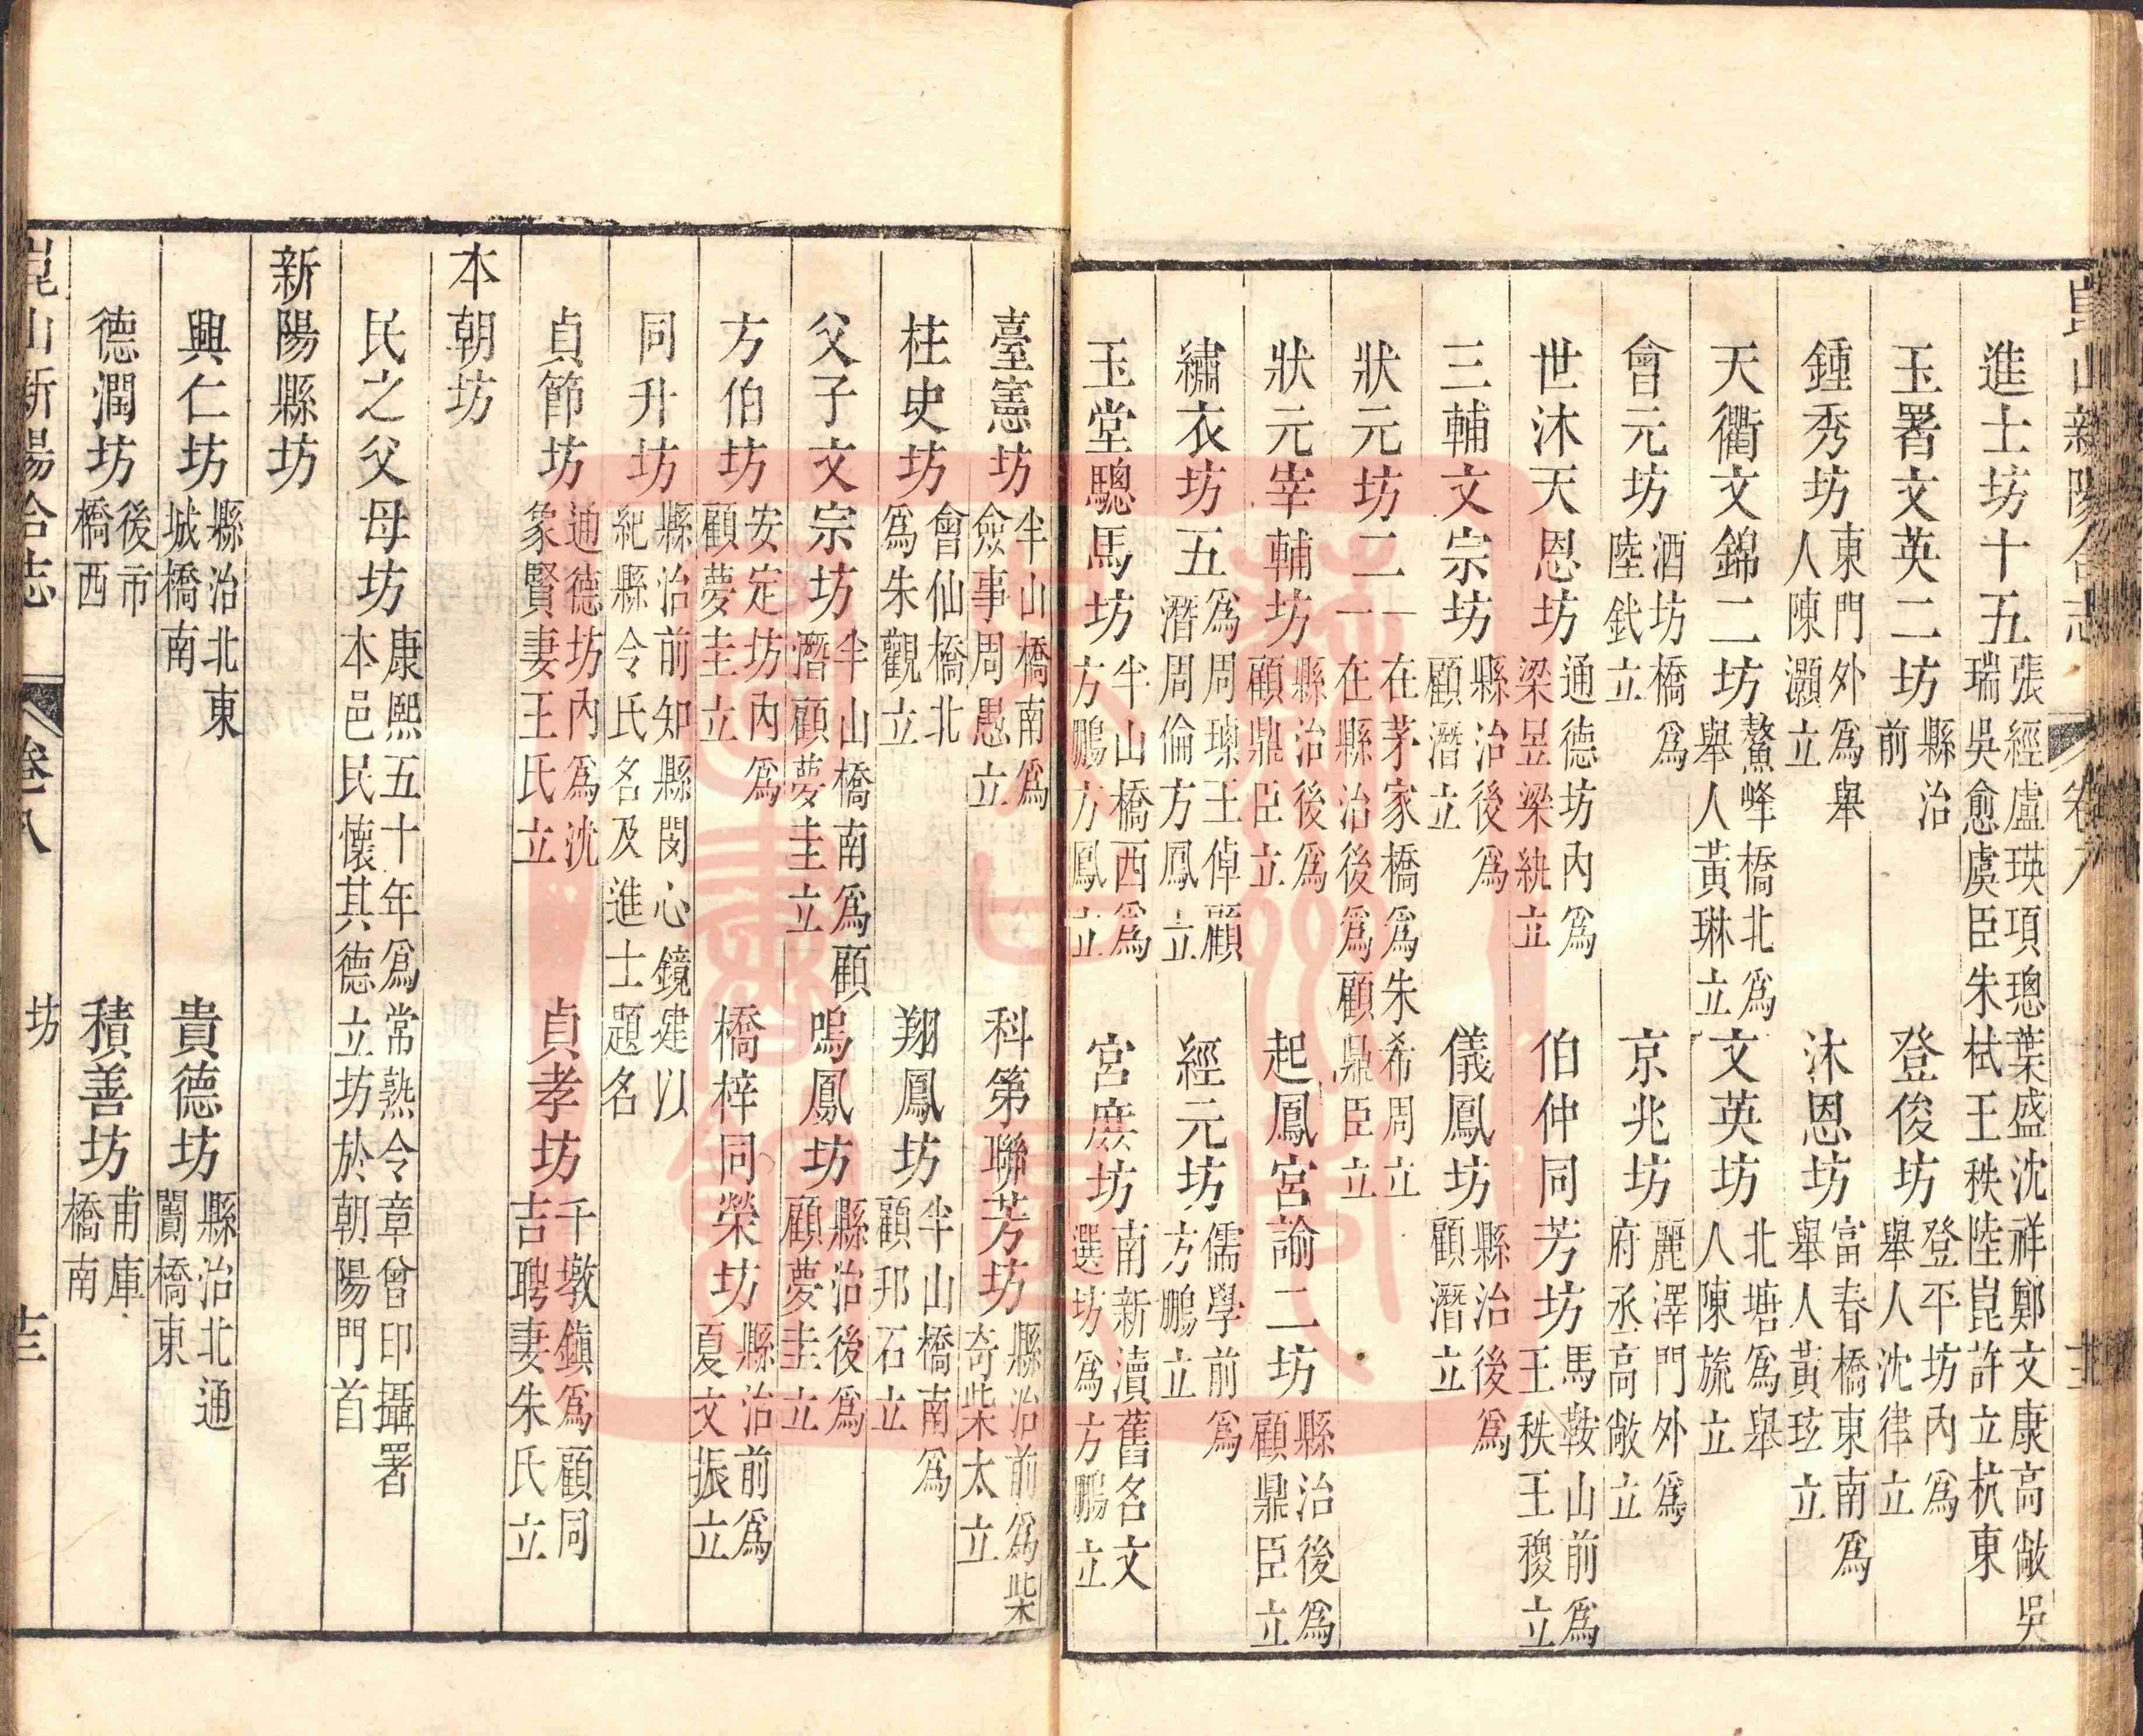 崑山新陽合志 卷八
進士坊十五 張經盧瑛項璁葉盛沈祥鄭文康高敞吳瑞吳愈虞臣朱栻王秩陸崑許立杭東
玉署文英二坊 縣治前 登俊坊 登平坊內為舉人沈律立
鍾秀坊 東門外為舉人陳灝立 沐恩坊 富春橋東南為舉人黃玹立
天衢文錦二坊 鰲峰橋北為舉人黃琳立 文英坊 北塘為舉人陳旒立
會元坊 酒坊橋為陸釴立 京兆坊 麗澤門外為府丞高敞立
世沐天恩坊 通德坊內為梁昱梁紈立 伯仲同芳坊 馬鞍山前為王秩王稷立
三輔文宗坊 縣治後為顧潛立 儀鳳坊 縣治後為顧潛立
狀元坊二 一在茅家橋為朱希周立一在縣治後為顧鼎臣立
狀元宰輔坊 縣治後為顧鼎臣立 起鳳宮諭二坊 縣治後為顧鼎臣立
繡衣坊五 為周璪王倬顧潛周倫方鳳立 經元坊 儒學前為方鵬立
玉堂驄馬坊 半山橋西為方鵬方鳳立 宮庶坊 南新瀆舊名文選坊為方鵬立
臺憲坊 半山橋南為僉事周愚立 科第聯芳坊 縣治前為柴奇柴太立
柱史坊 會仙橋北為朱觀立 翔鳳坊 半山橋南為顧邦石立
父子文宗坊 半山橋南為顧潛顧夢圭立 鳴鳳坊 縣治後為顧夢圭立
方伯坊 安定坊內為顧夢圭立 橋梓同榮坊 縣治前為夏文振立
同升坊 縣治前知縣閔心鏡建以紀縣令氏名及進士題名
貞節坊 通德坊內為沈象賢妻王氏立 貞孝坊 千墩鎮為顧同吉聘妻朱氏立
本朝坊
民之父母坊 康熙五十年為常熟令章曾印攝署本邑民懷其德立坊於朝陽門首
新陽縣坊
興仁坊 縣治北東城橋南 貴德坊 縣治北通闤橋東
德潤坊 後市橋西 積善坊 甫庫橋南
崑山新陽合志 卷八 坊